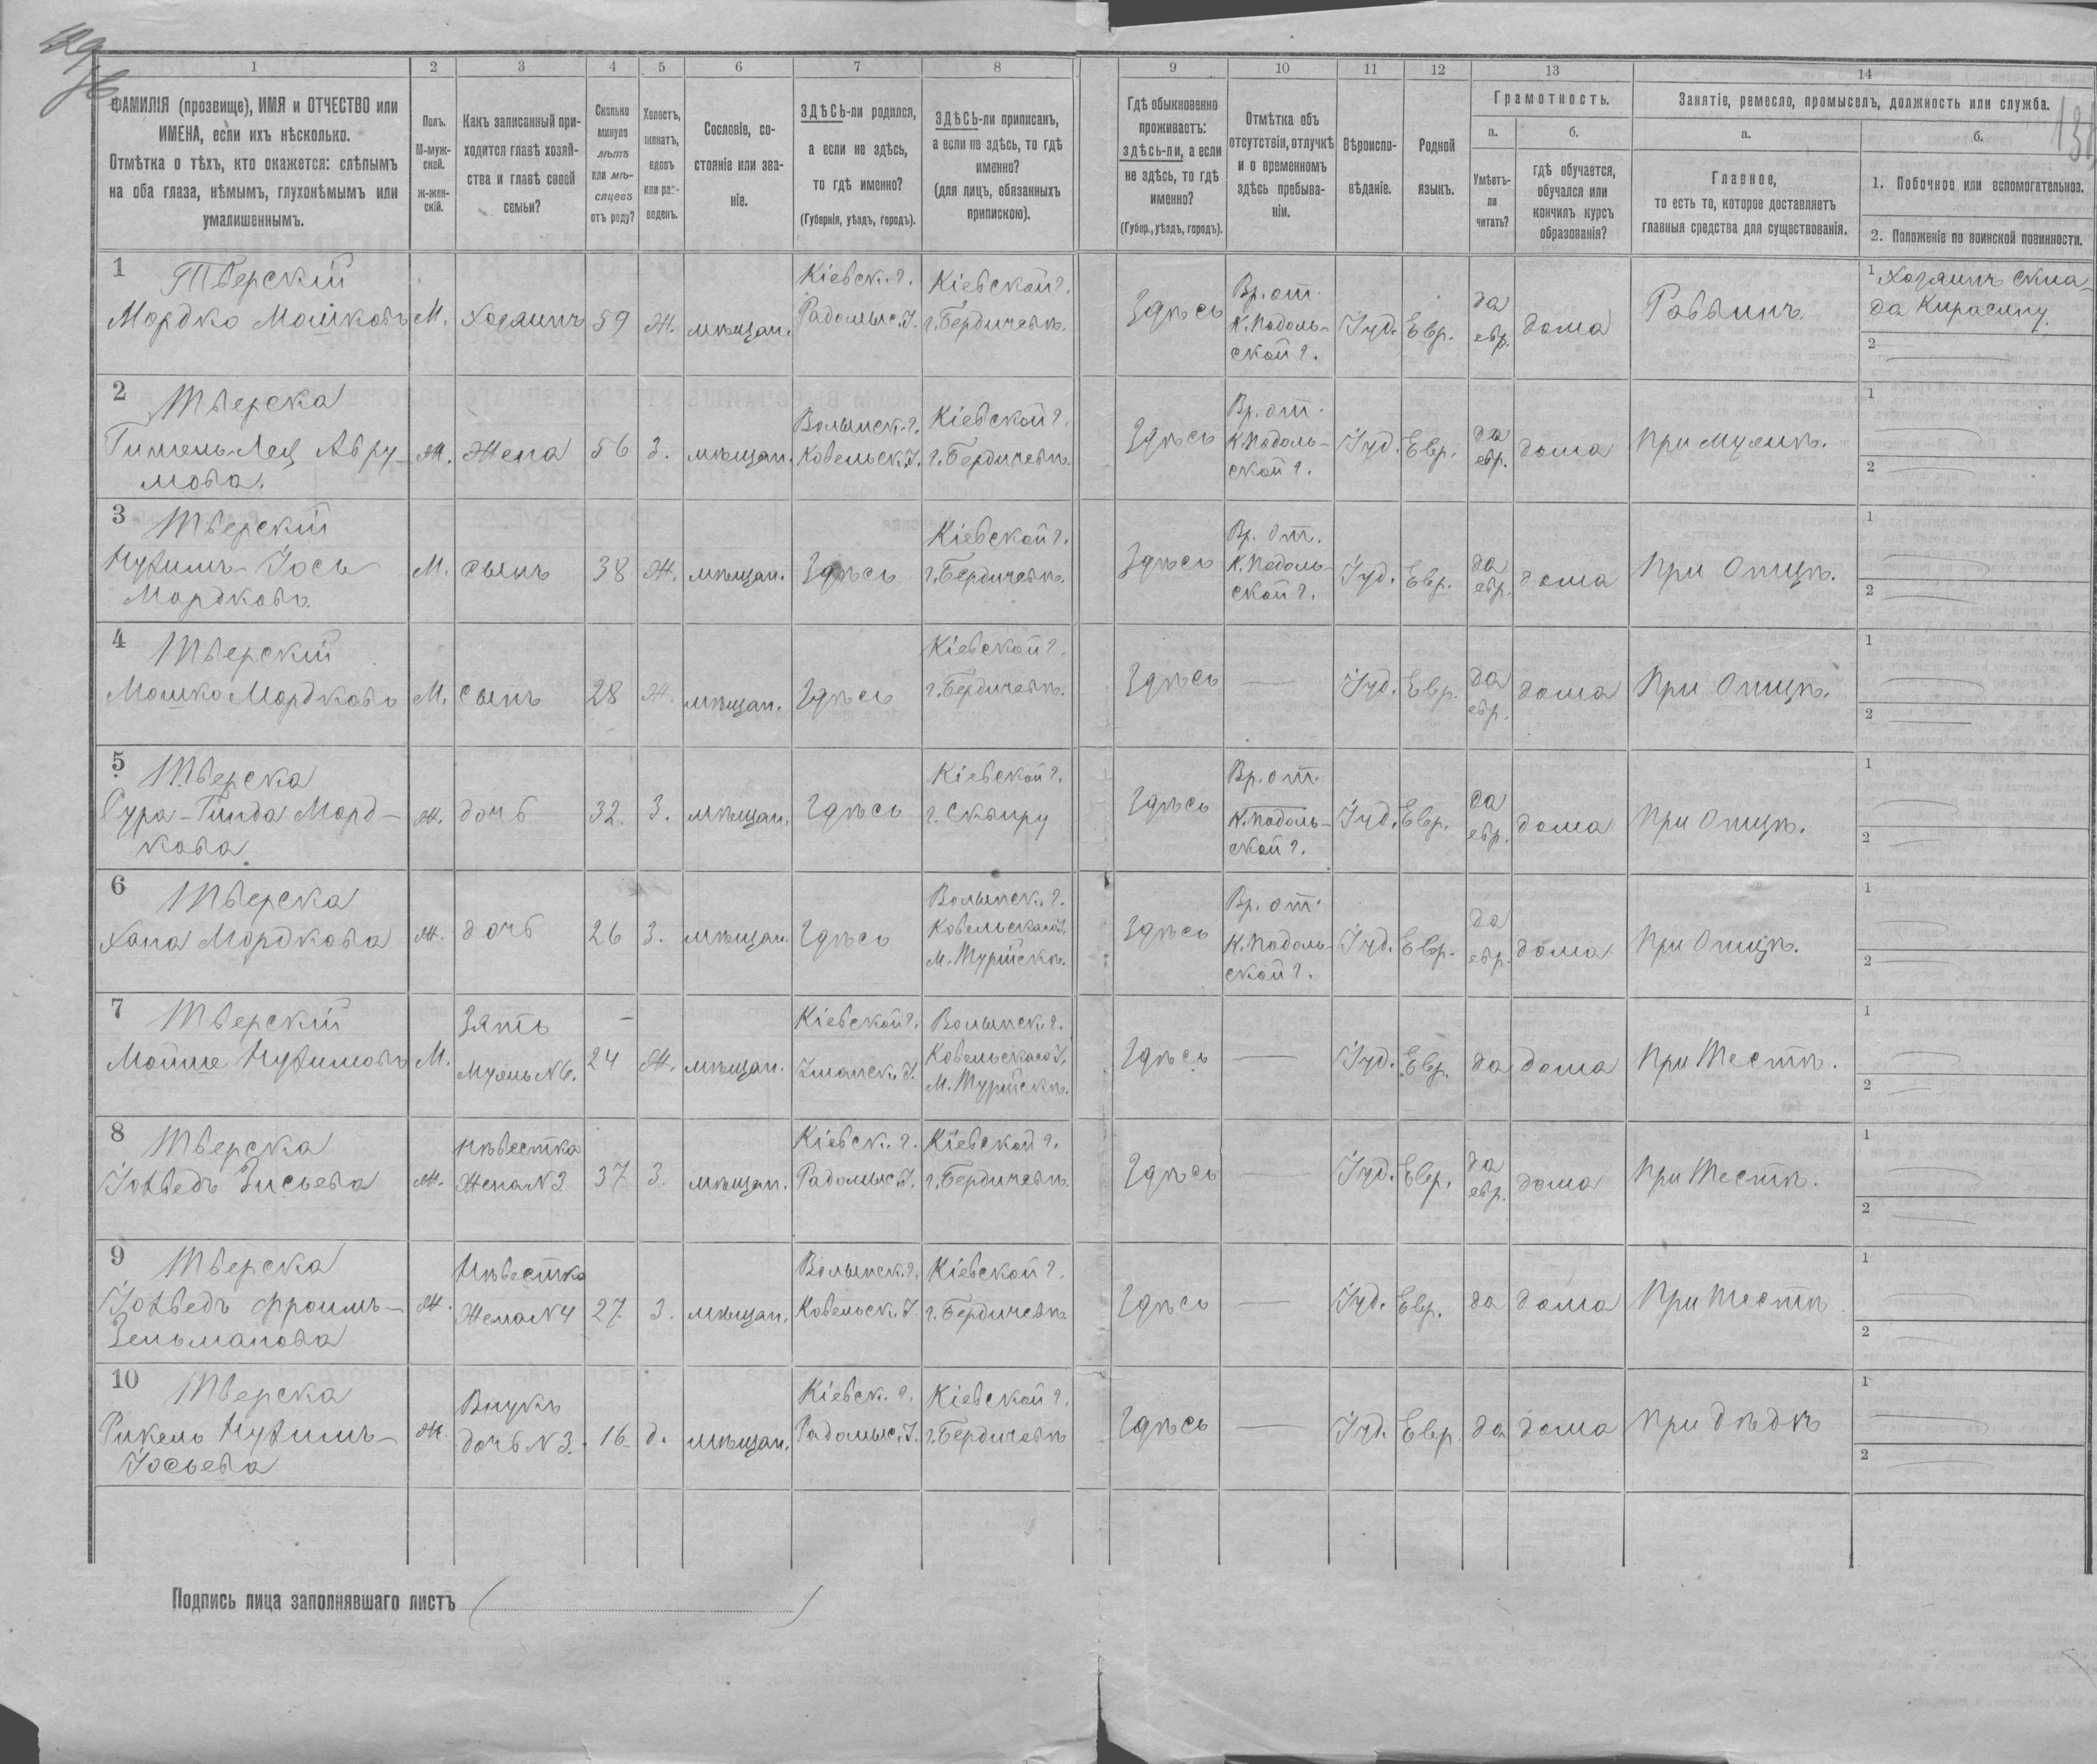 1 2 3 4 5 6 7 8 9 10 11 12 13 14
ФАМИЛІЯ (прозвище), ИМЯ и ОТЧЕСТВО или
ИМЕНА, если ихъ нѣсколько.
Отмѣтка о тѣхъ, кто окажется: слѣпымъ
на оба глаза, нѣмымъ, глухонѣмымъ или
умалишеннымъ.
Полъ.
М-муж-
ской.
ж-жен-
скій.
Какъ записанный при-
ходится главѣ хозяй-
ства и главѣ своей
семьи?
Сколько
минуло
лѣтъ
или мѣ-
сяцевъ
отъ роду?
Холостъ,
женатъ,
вдовъ
или раз-
веденъ.
Сословіе, со-
стояніе или зва-
ніе.
ЗДѢСЬ-ли родился,
а если не здѣсь,
то гдѣ именно?
(Губернія, уѣздъ, городъ).
ЗДѢСЬ-ли приписанъ,
а если не здѣсь, то гдѣ
именно?
(для лицъ, обязанныхъ
припискою).
Гдѣ обыкновенно
проживаетъ:
здѣсь-ли, а если
не здѣсь, то гдѣ
именно?
(Губер., уѣздъ, городъ).
Отмѣтка объ
отсутствіи, отлучкѣ
и о временномъ
здѣсь пребыва-
ніи.
Вѣроиспо-
вѣданіе.
Родной
языкъ.
Грамотность.
а.
Умѣетъ-
ли
читать?
б.
гдѣ обучается,
обучался или
кончилъ курсъ
образованія?
Занятіе, ремесло, промыселъ, должность или служба.
а.
Главное,
то есть то, которое доставляетъ
главныя средства для существованія.
б.
1. Побочное или вспомогательное.
2. Положеніе по воинской повинности.
1 Тверскій
Мордко Мошковъ
М.
Хозяинъ
59
Ж.
мѣщан.
Кіевск. г.
Радомыс. У.
Кіевской г.
г. Бердичевѣ
Здѣсь
Вр. от.
К. Подоль-
ской г.
Іуд.
Евр.
да
евр.
дома
Раввинъ
1 Хозяинъ скла-
да Кирасину
2
2 Тверска
Авру-
мова.
Ж.
Жена
56
З.
мѣщан.
Волынск. г.
Ковельск. У.
Кіевской г.
г. Бердичевѣ
Здѣсь
Вр. от.
К. Подоль-
ской г.
Іуд.
Евр.
да
евр.
дома
При мужѣ.
1
2
3 Тверскій
Нухимъ-Іось
Мордковъ
М.
сынъ
38
Ж.
мѣщан.
Здѣсь
Кіевской г.
г. Бердичевѣ
Здѣсь
Вр. от.
К. Подоль-
ской г.
Іуд.
Евр.
да
евр.
дома
При Отцѣ.
1
2
4 Тверскій
Мошко Мордковъ
М.
сынъ
28
Ж.
мѣщан.
Здѣсь
Кіевской г.
г. Бердичевѣ
Здѣсь
Іуд.
Евр.
да
евр.
дома
При Отцѣ.
1
2
5 Тверска
Сура-Гинда Морд-
кова
Ж.
дочь
32.
З.
мѣщан.
Здѣсь
Кіевской г.
г. Сквиру
Здѣсь
Вр. от.
К. Подоль-
ской г.
Іуд.
Евр.
да
евр.
дома
При Отцѣ.
1
2
6 Тверска
Хана Мордкова
Ж.
дочь
26
З.
мѣщан.
Здѣсь
Волынск. г.
Ковельскаго У.
М. Турійскѣ
Здѣсь
Вр. от.
К. Подоль-
ской г.
Іуд.
Евр.
да
евр.
дома
При Отцѣ.
1
2
7 Тверскій
Мойше Нухимовъ
М.
Зять
Мужъ N 6.
24
Ж.
мѣщан.
Кіевской г.
Уманск. У.
Волынск. г.
Ковельскаго У.
М. Турійскѣ
Здѣсь
Іуд.
Евр.
да
дома
При Тестѣ.
1
2
8 Тверска
Іохведъ Зисьева
Ж.
Нѣвестка
Жена N 3
37
З.
мѣщан.
Кіевск. г.
Радомыс. У.
Кіевской г.
г. Бердичевѣ
Здѣсь
Іуд.
Евр.
да
евр.
дома
При Тестѣ.
1
2
9 Тверска
Іохведъ Фроимъ-
Зельманова
Ж.
Нѣвестка
Жена N 4
27
З.
мѣщан.
Волынск. г.
Ковельск. У.
Кіевской г.
г. Бердичевѣ
Здѣсь
Іуд.
Евр.
да
дома
При Тестѣ
1
2
10 Тверска
Рикель Нухимъ-
Іосьева
Ж.
Внукъ
дочь N 3.
16
д.
мѣщан.
Кіевск. г.
Радомыс. У.
Кіевской г.
г. Бердичевѣ
Здѣсь
Іуд.
Евр
да
дома
При Дѣдѣ
1
2
Подпись лица заполнявшаго листъ